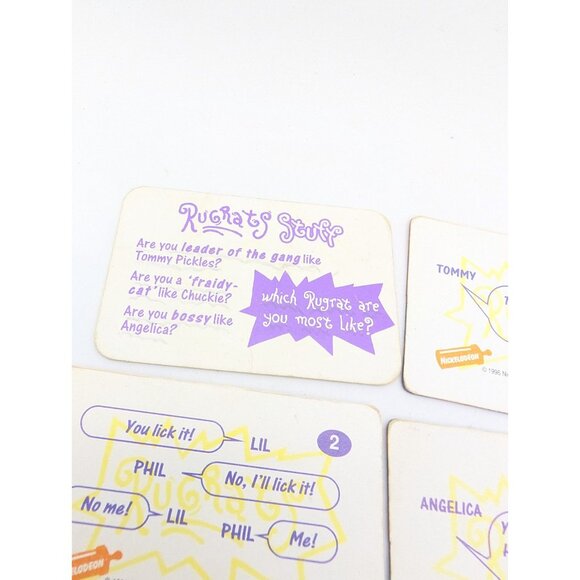 Rugrats Stuff
Are you leader of the gang like
Tommy Pickles?
Are you a 'fraidy-
cat' like Chuckie?
Are you bossy like
Angelica?
which Rugrat are
you most like?
TOMMY
T
NICKELODEON
© 1996 Ni
You lick it!
LIL
2
PHIL
No, I'll lick it!
No me!
LIL
PHIL
Me!
RUGRATS
ELODEON
ANGELICA